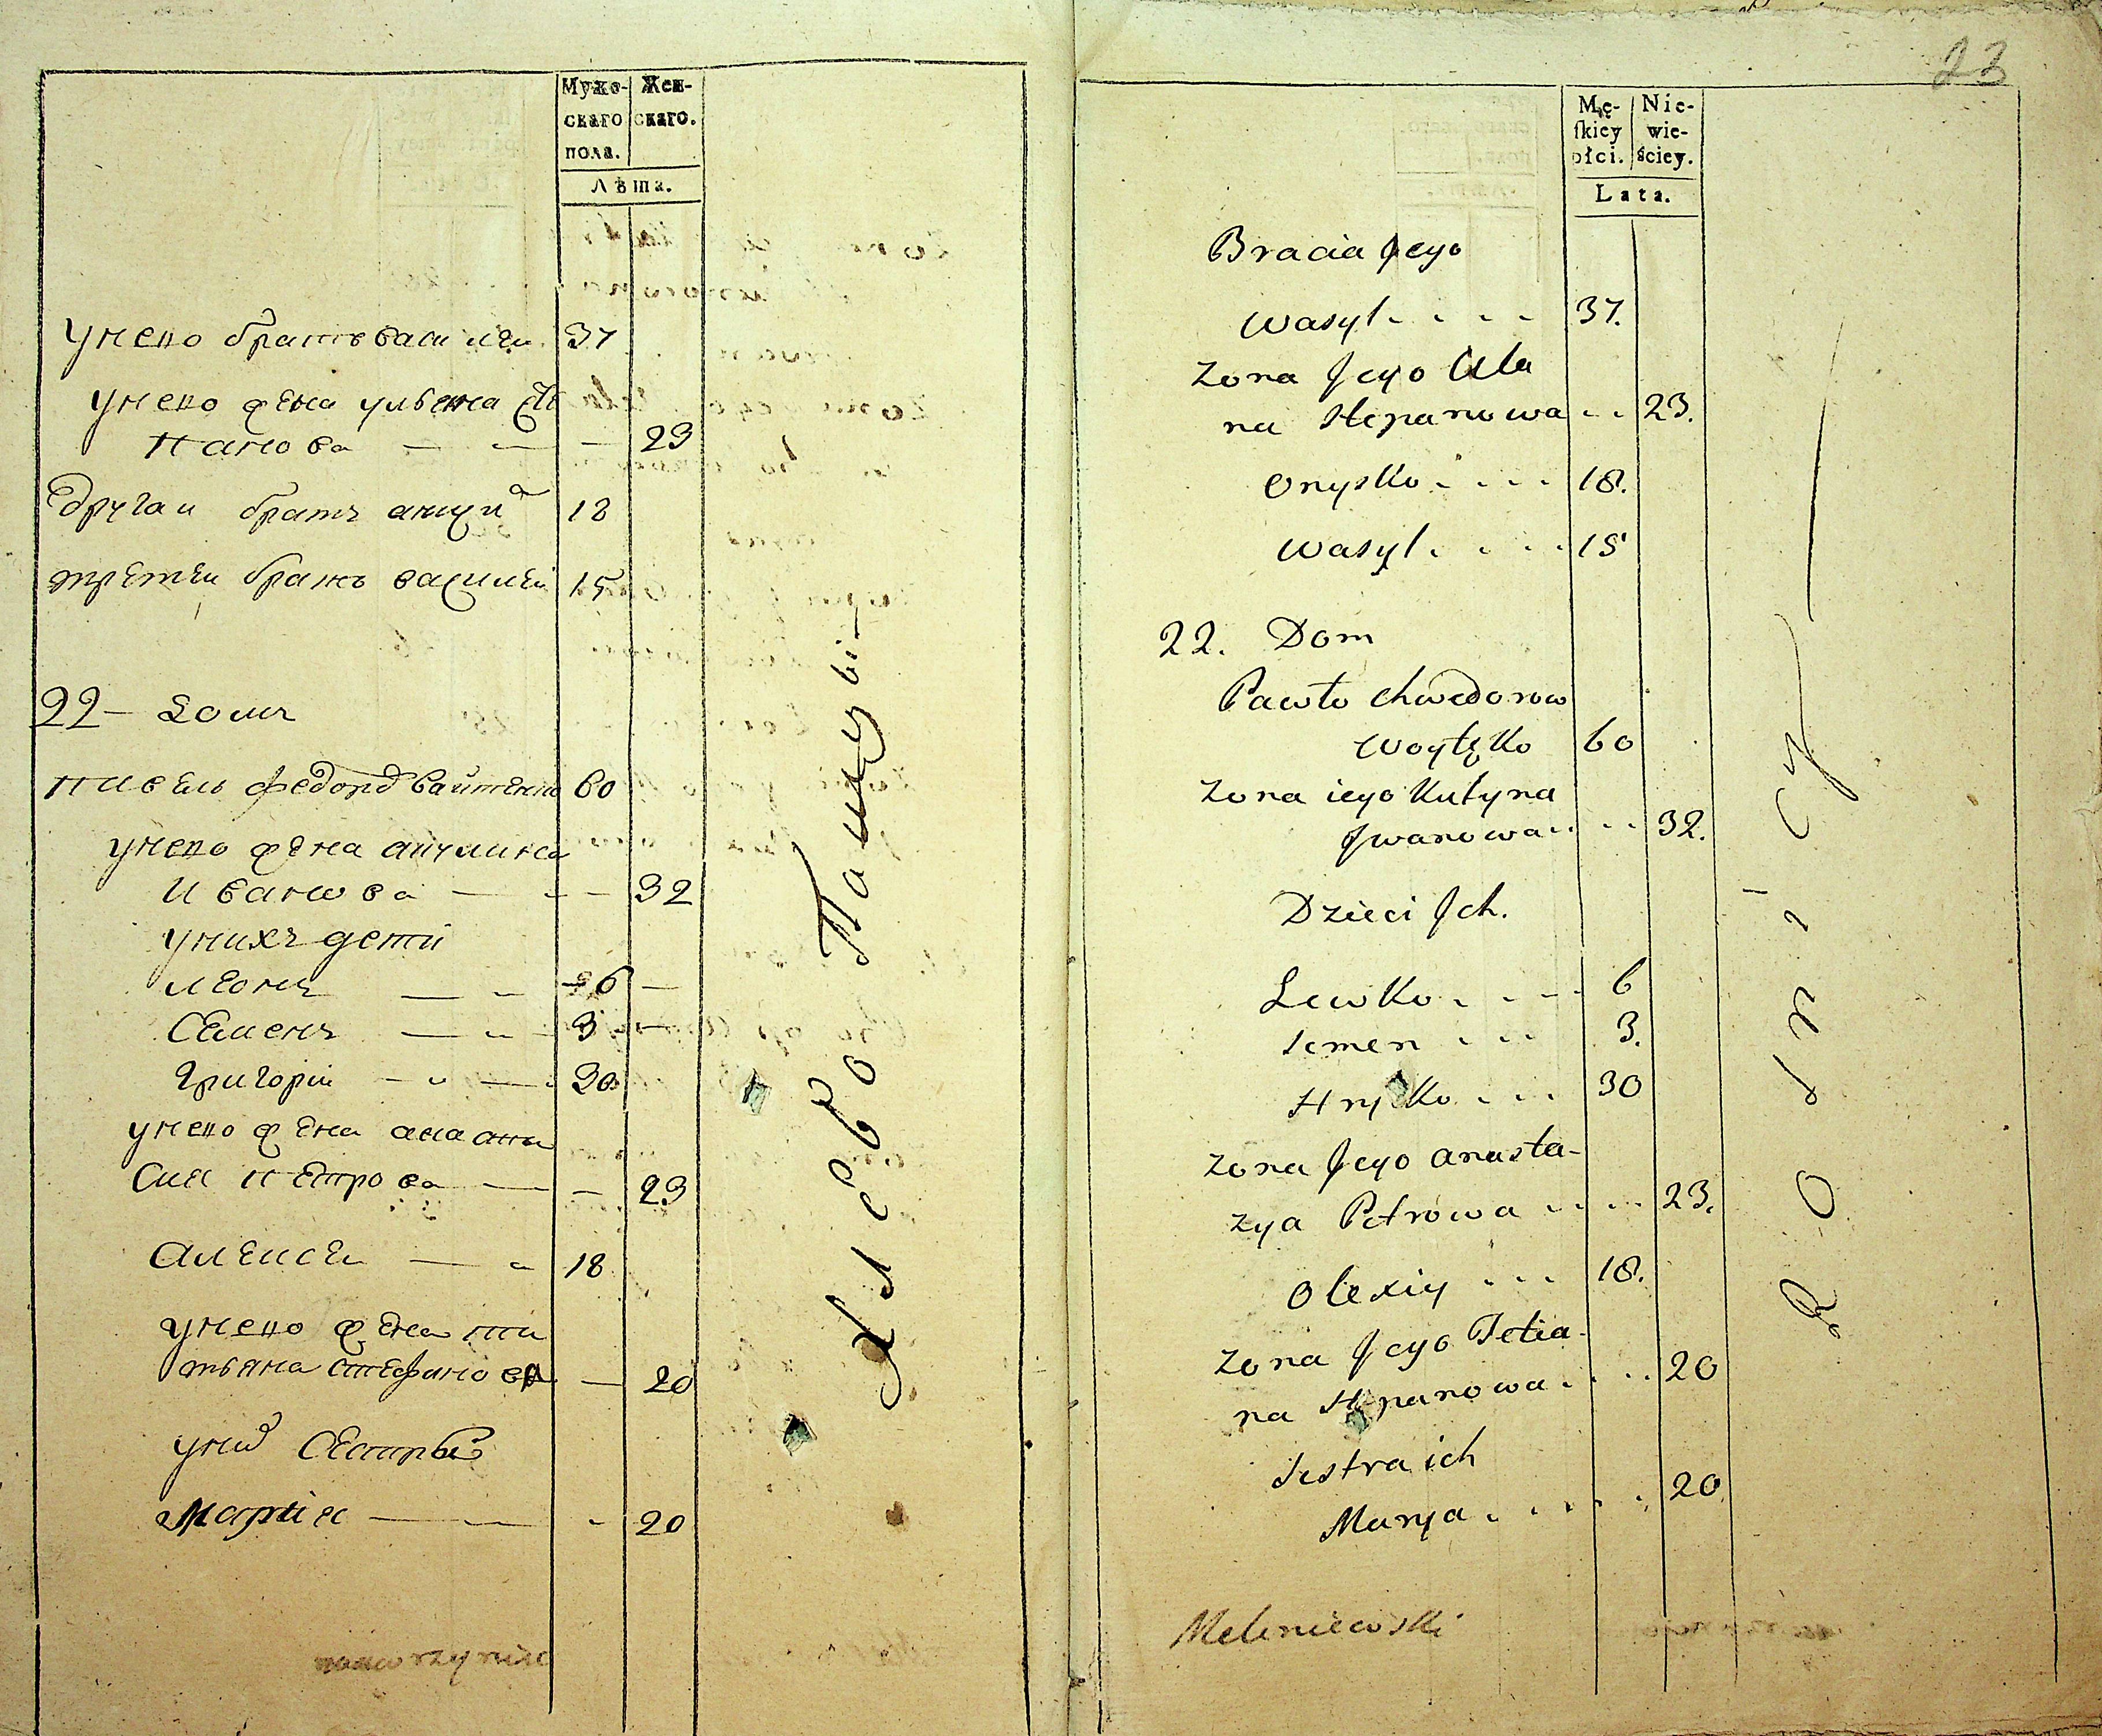 Мужескаго пола.
Женскаго.
Лѣта.
У него братъ василеи 37
У него жена ульяна Сте
панова — — — 23
Другаи братъ 18
третеи братъ василеи 15
22 — Домъ
павель федоров Вайтенко 60
у него жена акулина
Иванова — — — 32
у нихъ дети
леонъ — — 6 —
Семенъ — — 3 —
Григорiи — — 30
у него жена анаста
сия петрова — — 23
Алексеи — — 18
у него жена та
тьяна Стефанова — 20
у них Сестра
Марiя — — - 20
23
Męſkiey płci.
Niewieściey.
Lata.
Bracia Jego
Wasyl . . . . 37.
Zona Jego Ula
na Stepanowa . . 23.
Onysko . . . . 18.
Wasyl . . . . 15
22. Dom
Pawło Chwedorow
Woytęko 60
Zona iego Kulyna
Jwanowa . . . . 32.
Dzieci Jch.
Lewko . . . . 6
Semen . . . 3.
Hryćko . . . 30
Zona Jego Anasta-
zya Petrowa . . . . 23.
Olexiy . . . 18.
Zona Jego Tetia-
na Stepanowa . . . . 20
Sestra ich
Marya . . . . . 20
Meleniewski
Rolnicy